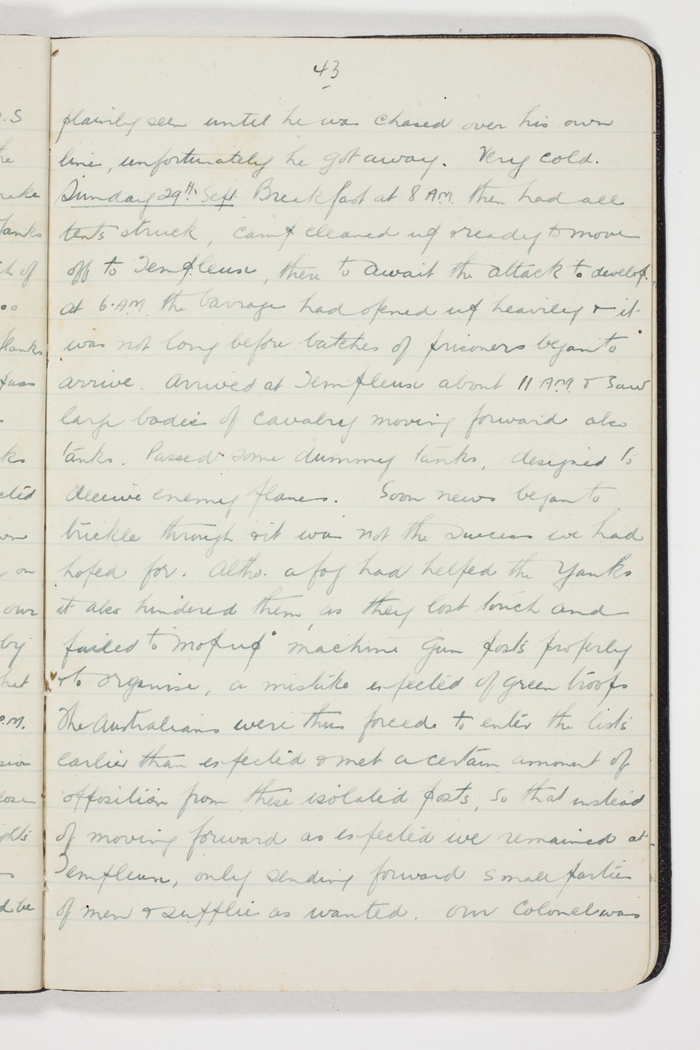 43
plainly seen until he was chased over his own
line, unfortunately he got away. Very cold.
Sunday 29th Sept. Breakfast at 8 A.M. then had all
tents struck, camp cleaned up & ready to move
off to Templeux, there to await the attack to develop.
at 6 A.M. the barrage had opened up heavily & it
was not long before batches of prisoners began to
arrive. Arrived at Templeux about 11 A.M. & saw
large bodies of cavalry moving forward also
tanks. Passed some dummy tanks, designed to
deceive enemy planes. Soon news began to
trickle through & it was not the success we had
hoped for. Altho. a fog had helped the Yanks
it also hindered them, as they lost touch and
failed to "mop up" machine gun posts properly
& to organise, a mistake expected of green troops
The Australians were thus forced to enter the lists
earlier than expected & met a certain amount of
opposition from these isolated posts, so that instead
of moving forward as expected we remained at
Templeux, only sending forward small parties
of men & supplies as wanted. Our Colonel was